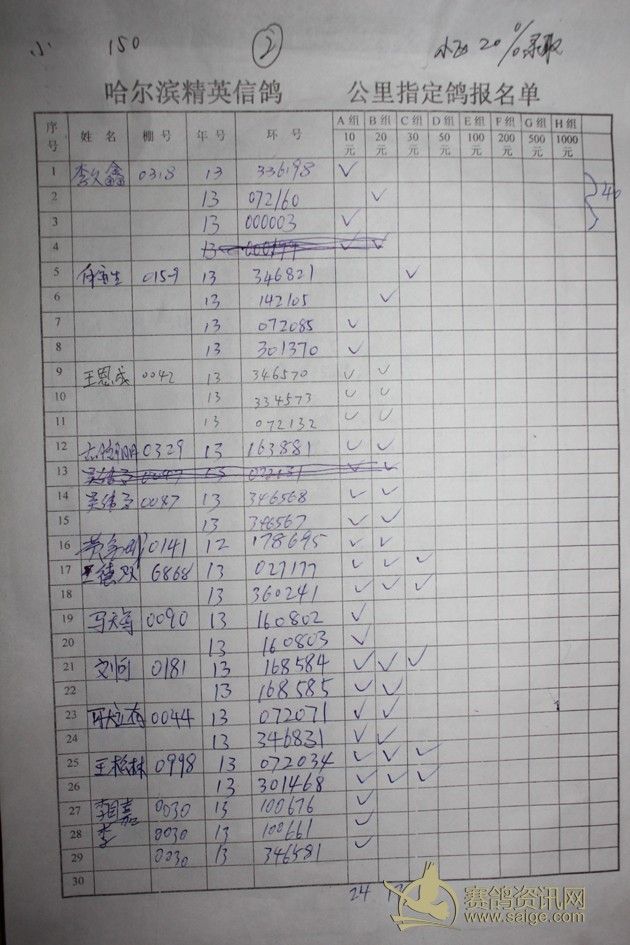 小 150 ② 20% 录取
哈尔滨精英信鸽 公里指定鸽报名单
序号 姓名 棚号 年号 环号 A组 10元 B组 20元 C组 30元 D组 50元 E组 100元 F组 200元 G组 500元 H组 1000元
1 李久鑫 0318 13 336198 ✓
2 13 072160 ✓ 40
3 13 000003 ✓
4 13 ✓ ✓
5 0159 13 346821 ✓
6 13 142105 ✓
7 13 072085 ✓
8 13 301370 ✓
9 王恩成 0042 13 346570 ✓ ✓
10 13 334573 ✓ ✓
11 13 072132 ✓ ✓
12 0329 13 163881 ✓ ✓
13 吴伟 0047 13 072131 ✓ ✓
14 吴伟 0047 13 346568 ✓ ✓
15 13 346567 ✓ ✓
16 0141 12 178695 ✓ ✓
17 王德双 6868 13 027177 ✓ ✓ ✓
18 13 360241 ✓ ✓ ✓
19 马天 0090 13 160802 ✓
20 13 160803 ✓
21 刘 0181 13 168584 ✓ ✓ ✓
22 13 168585 ✓ ✓
23 0044 13 072071 ✓ ✓
24 13 346831 ✓ ✓
25 王松林 0998 13 072034 ✓ ✓ ✓
26 13 301468 ✓ ✓ ✓
27 李 嘉 0030 13 100676 ✓
28 李 0030 13 100661 ✓
29 0030 13 346581 ✓
30
24
赛鸽资讯网
www.saige.com